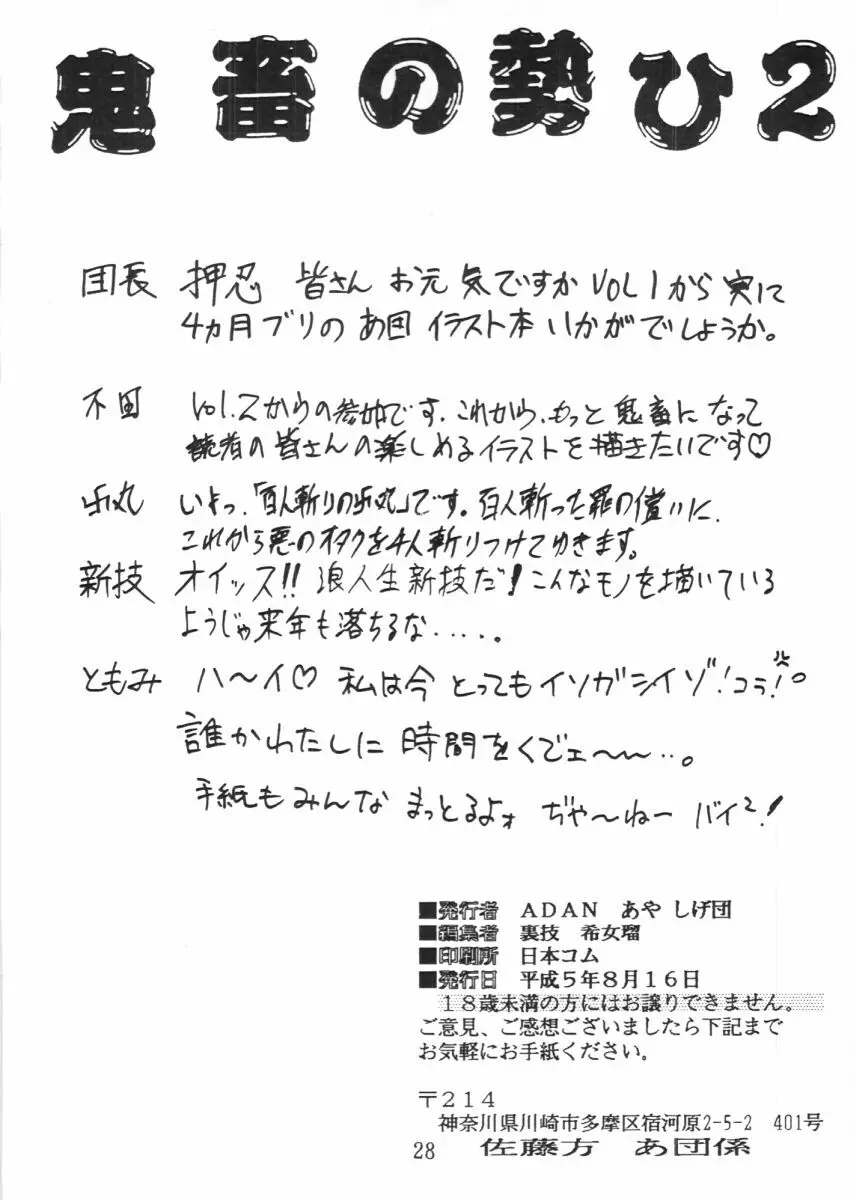 鬼畜の勢ひ2
団長 押忍 皆さん お元気ですか VOL1から 実に
4ヵ月ブリの あ団 イラスト本 いかがでしょうか。
不田 Vol.2からの参加です。これから、もっと鬼畜になって
読者の皆さんの楽しめるイラストを描きたいです♡
いよっ、「百人斬りの 丸」です。百人斬った罪の償いに、
これから悪のオタクを4人斬りつけてゆきます。
新技 オイッス!! 浪人生新技だ!こんなモノを描いている
ようじゃ来年も落ちるな.....。
ともみ ハ〜イ♡ 私は今 とってもイソガシイゾ!コラ!。
誰かわたしに 時間をくでェ〜〜...。
手紙もみんな まっとるよォ ぢゃ〜ねー バイ2!
■発行者 ADAN あや しげ団
■編集者 裏技 希女瑠
■印刷所 日本コム
■発行日 平成5年8月16日
18歳未満の方にはお譲りできません。
ご意見、ご感想ございましたら下記まで
お気軽にお手紙ください。
〒214
神奈川県川崎市多摩区宿河原2-5-2 401号
28 佐藤方 あ団係